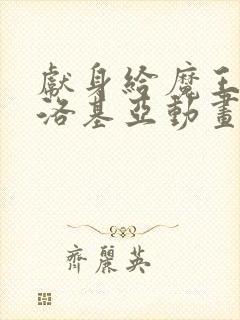 獻身給魔王
洛基亞動畫
齊麗英